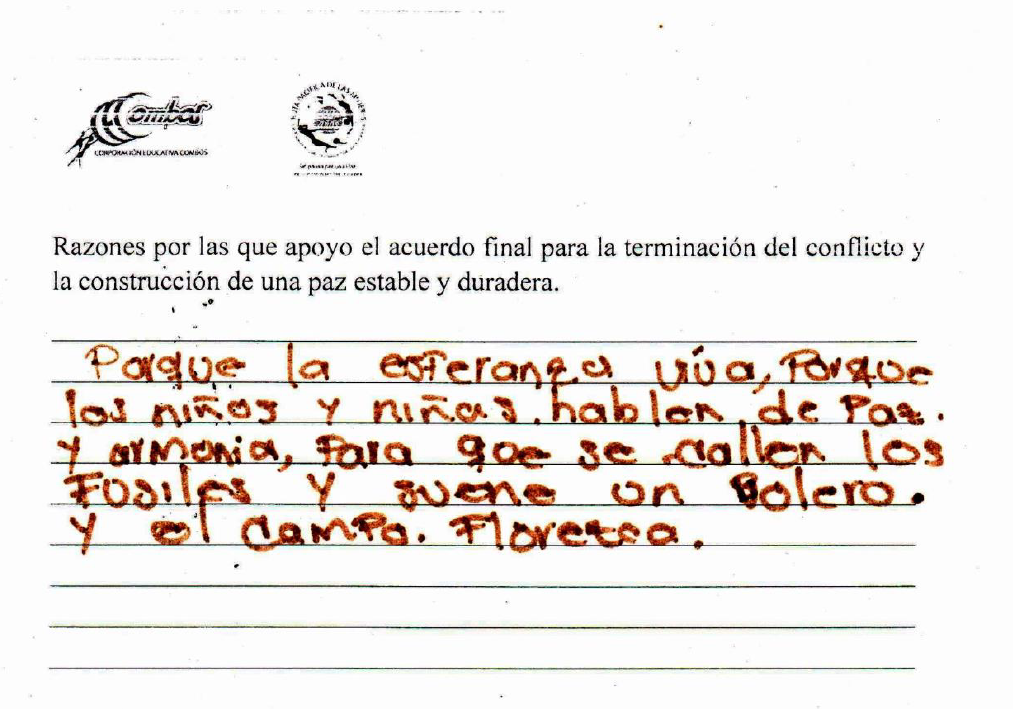 Combos
CORPORACIÓN EDUCATIVA COMBOS
RUTA PACIFICA DE LAS MUJERES
Razones por las que apoyo el acuerdo final para la terminación del conflicto y
la construcción de una paz estable y duradera.
Porque la esperanza viva, Porque
los niños y niñas. hablen de Paz.
y armonia, Para que se callen los
Fusiles y suene un Bolero.
y el camPo. Florezca.